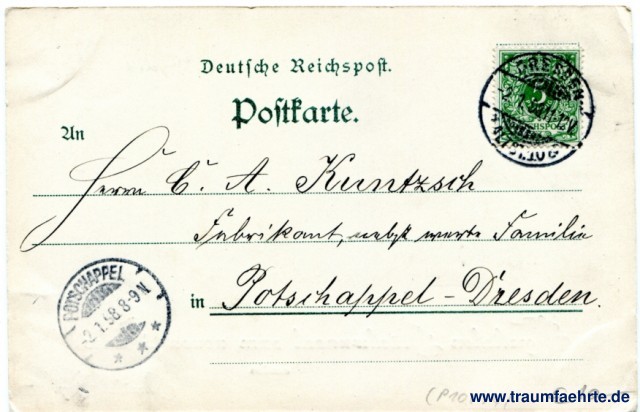 Deutsche Reichspost.
DRESDEN
Postkarte.
An
Herrn C. A. Kuntzsch
Fabrikant, nebst werte Familie
in Potschappel-Dresden.
POTSCHAPPEL
2.1.98 8-9N
www.traumfaehrte.de